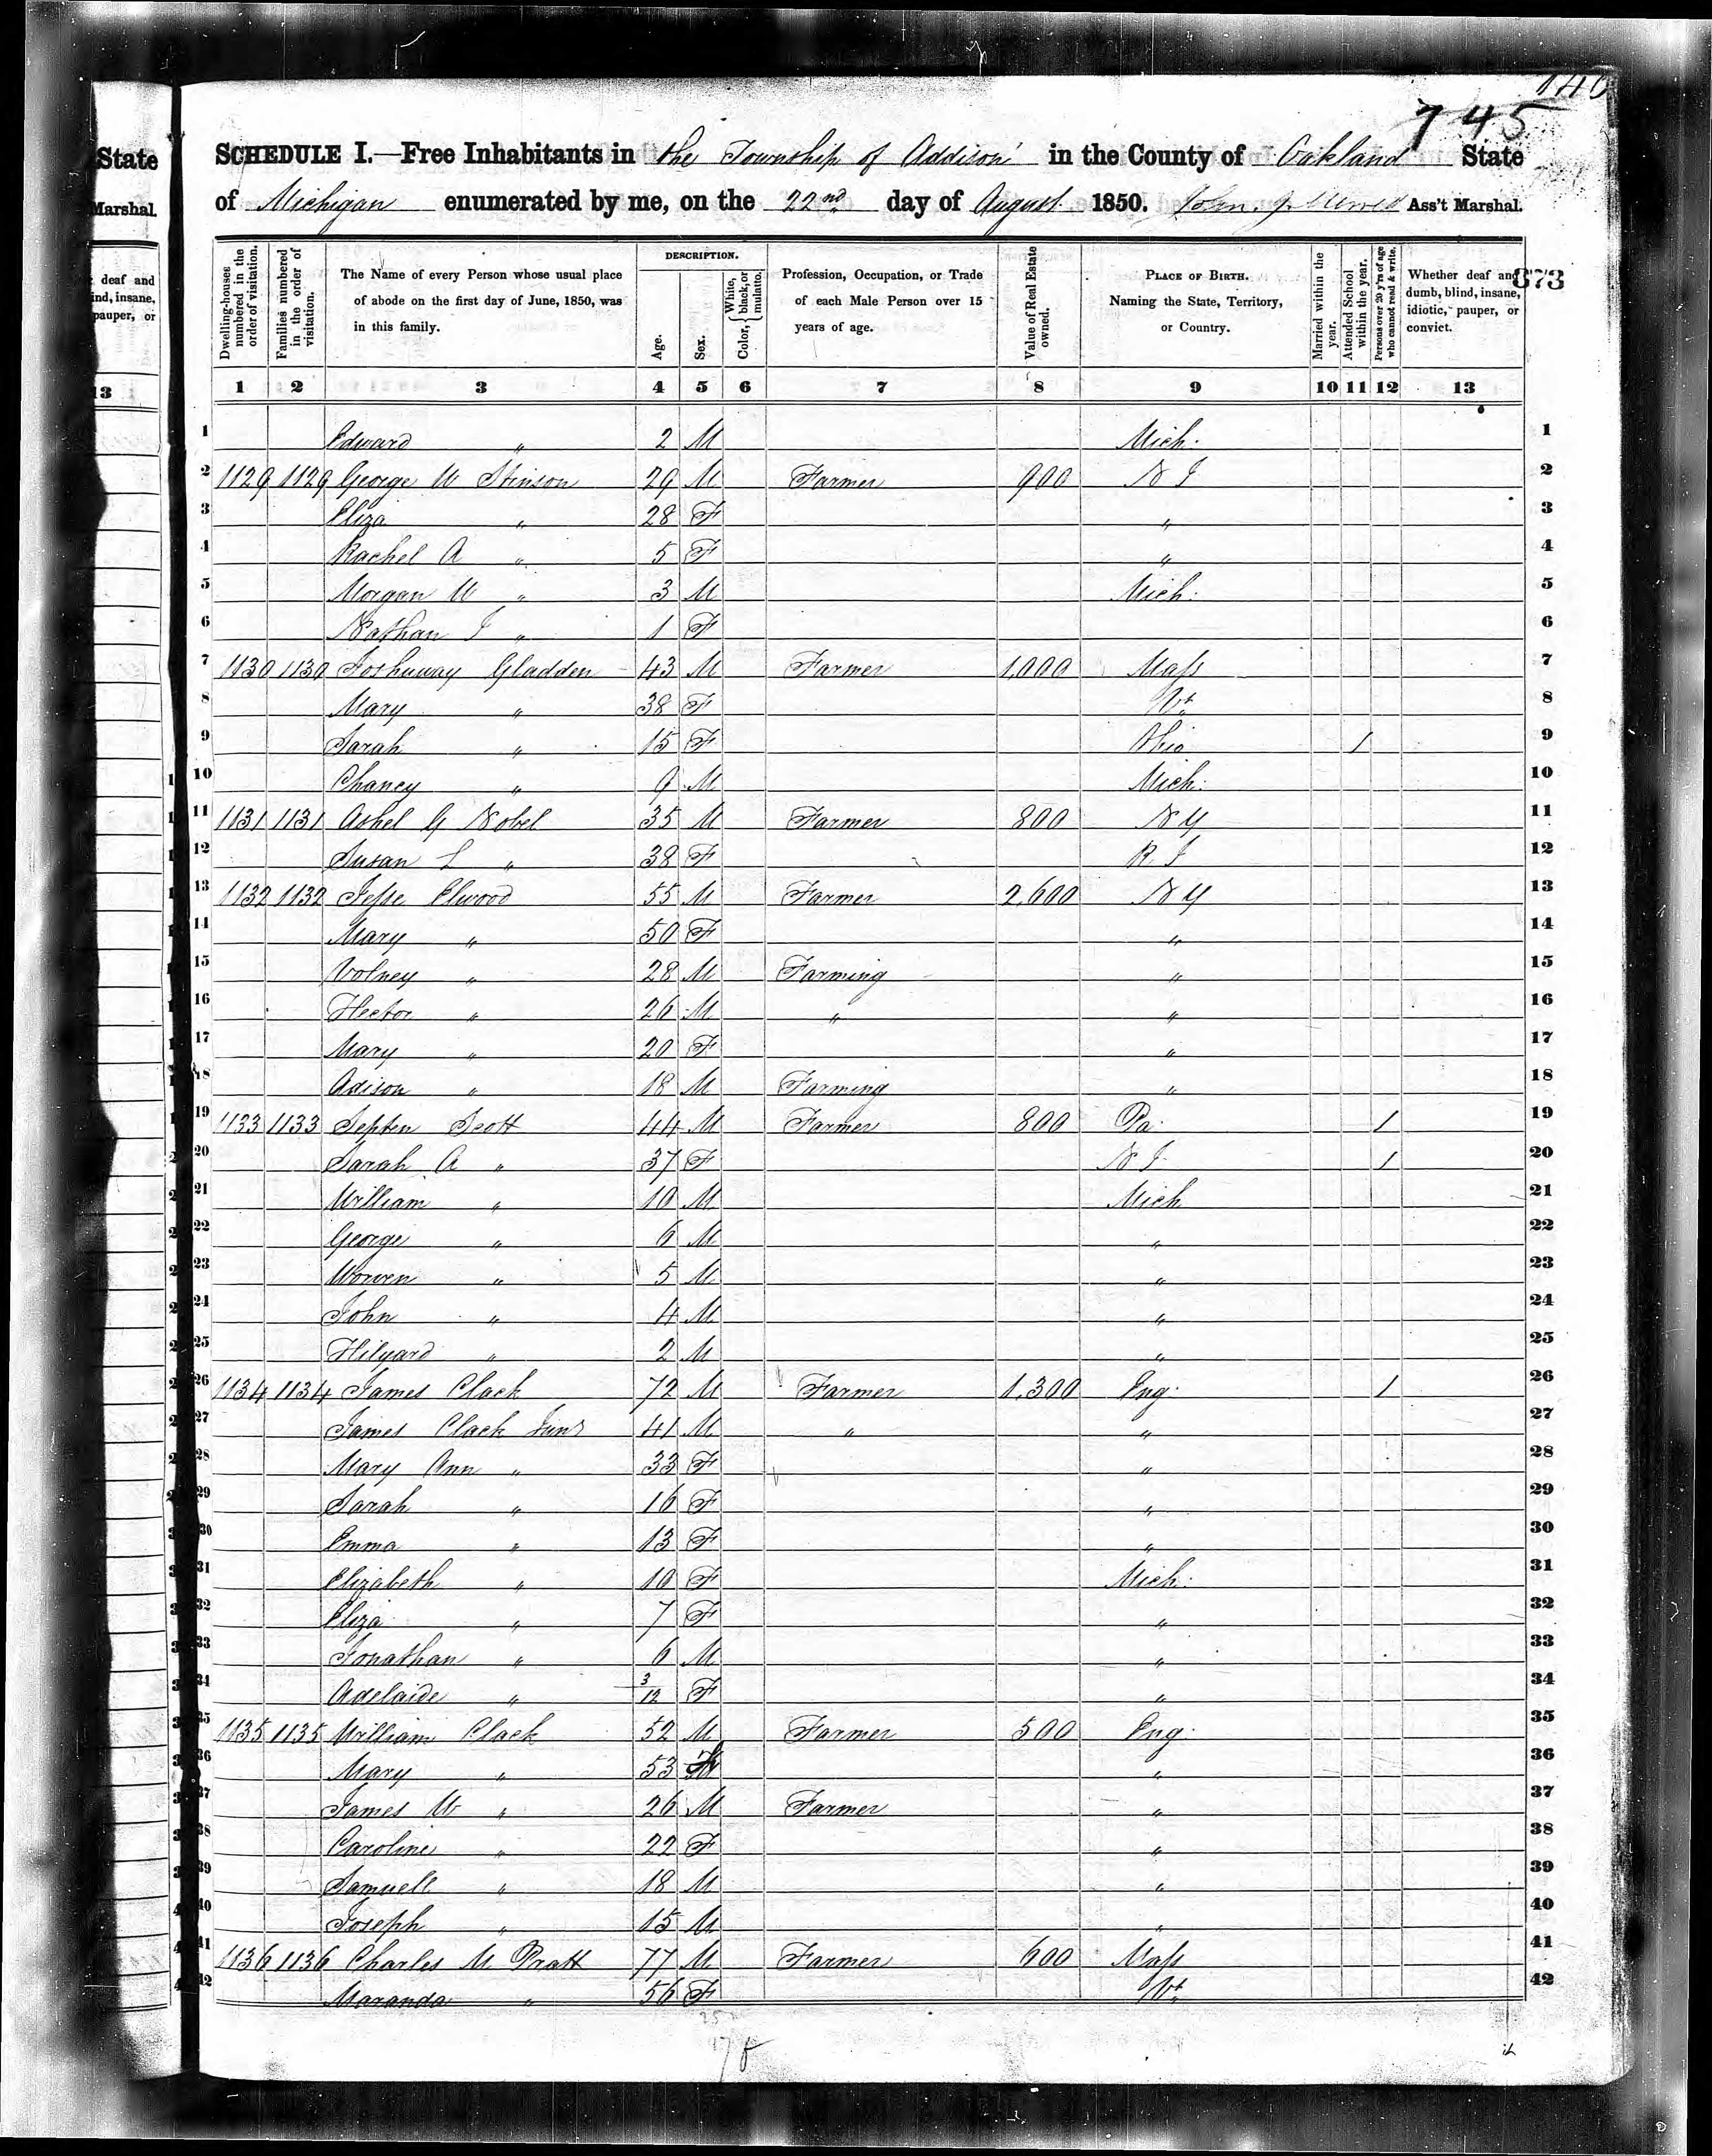 State
Marshal.
deaf and
ind, insane,
pauper, or
13
745
SCHEDULE I.—Free Inhabitants in the Township of Addison in the County of Oakland State
of Michigan enumerated by me, on the 22nd day of August 1850. John J. Ass't Marshal.
873
Dwelling-houses numbered in the order of visitation.
Families numbered in the order of visitation.
The Name of every Person whose usual place of abode on the first day of June, 1850, was in this family.
DESCRIPTION.
Age.
Sex.
Color, White, black, or mulatto.
Profession, Occupation, or Trade of each Male Person over 15 years of age.
Value of Real Estate owned.
PLACE OF BIRTH. Naming the State, Territory, or Country.
Married within the year.
Attended School within the year.
Persons over 20 y'rs of age who cannot read & write.
Whether deaf and dumb, blind, insane, idiotic, pauper, or convict.
1 2 3 4 5 6 7 8 9 10 11 12 13
1 Edward " 2 M Mich. 1
2 1129 1129 George W Stinson 29 M Farmer 900 N J 2
3 Eliza " 28 F " 3
4 Rachel A " 5 F " 4
5 Morgan W " 3 M Mich: 5
6 Nathan J " 1 F 6
7 1130 1130 Joshuway Gladden 43 M Farmer 1,000 Mass 7
8 Mary " 38 F Vt. 8
9 Sarah " 15 F Ohio 1 9
10 Chaney " 9 M Mich: 10
11 1131 1131 Ashel G Nobel 35 M Farmer 800 N Y 11
12 Susan L " 38 F R. I 12
13 1132 1132 Jesse Elwood 55 M Farmer 2,600 N Y 13
14 Mary " 50 F " 14
15 Volney " 28 M Farming " 15
16 Hector " 26 M " " 16
17 Mary " 20 F " 17
18 Adison " 18 M Farming " 18
19 1133 1133 Septen Scott 44 M Farmer 800 Pa. 1 19
20 Sarah A " 37 F N J 1 20
21 William " 10 M Mich 21
22 George " 6 M " 22
23 Worven " 5 M " 23
24 John " 4 M " 24
25 Hilyard " 2 M " 25
26 1134 1134 James Clack 72 M Farmer 1,300 Eng. 1 26
27 James Clack Junr 41 M " " 27
28 Mary Ann " 33 F " 28
29 Sarah " 16 F " 29
30 Emma " 13 F " 30
31 Elizabeth " 10 F Mich: 31
32 Eliza " 7 F " 32
33 Jonathan " 6 M " 33
34 Adelaide " 3/12 F " 34
35 1135 1135 William Clack 52 M Farmer 500 Eng. 35
36 Mary " 53 F " 36
37 James W " 26 M Farmer " 37
38 Caroline " 22 F " 38
39 Samuell " 18 M " 39
40 Joseph " 15 M " 40
41 1136 1136 Charles M Pratt 77 M Farmer 600 Mass 41
42 Maranda " 56 F Vt. 42